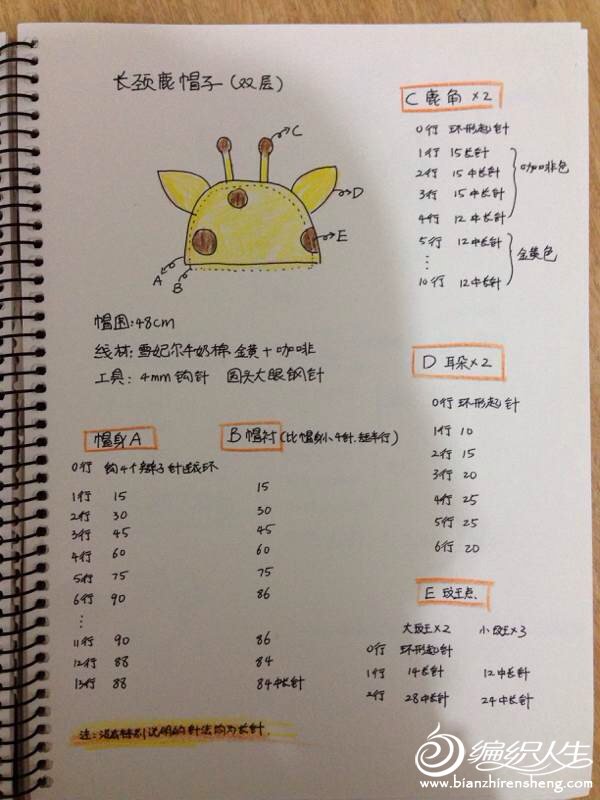 长颈鹿帽子(双层)
C
D
E
A
B
帽围:48cm
线材:雪妃尔牛奶棉.金黄+咖啡
工具:4mm钩针 圆头大眼钢针
帽身A
0行 钩4个辫子针连成环
1行 15
2行 30
3行 45
4行 60
5行 75
6行 90
⋮
11行 90
12行 88
13行 88
B 帽衬(比帽身小4针.短半行)
15
30
45
60
75
86
86
84
84中长针
注:没有特别说明的针法均为长针.
C 鹿角×2
0行 环形起针
1行 15长针
2行 15中长针
3行 15中长针
4行 12中长针
咖啡色
5行 12中长针
⋮
10行 12中长针
金黄色
D 耳朵×2
0行 环形起针
1行 10
2行 15
3行 20
4行 25
5行 25
6行 20
E 斑点
大斑×2 小斑×3
0行 环形起针
1行 14长针 12中长针
2行 28中长针 24中长针
编织人生
www.bianzhirensheng.com